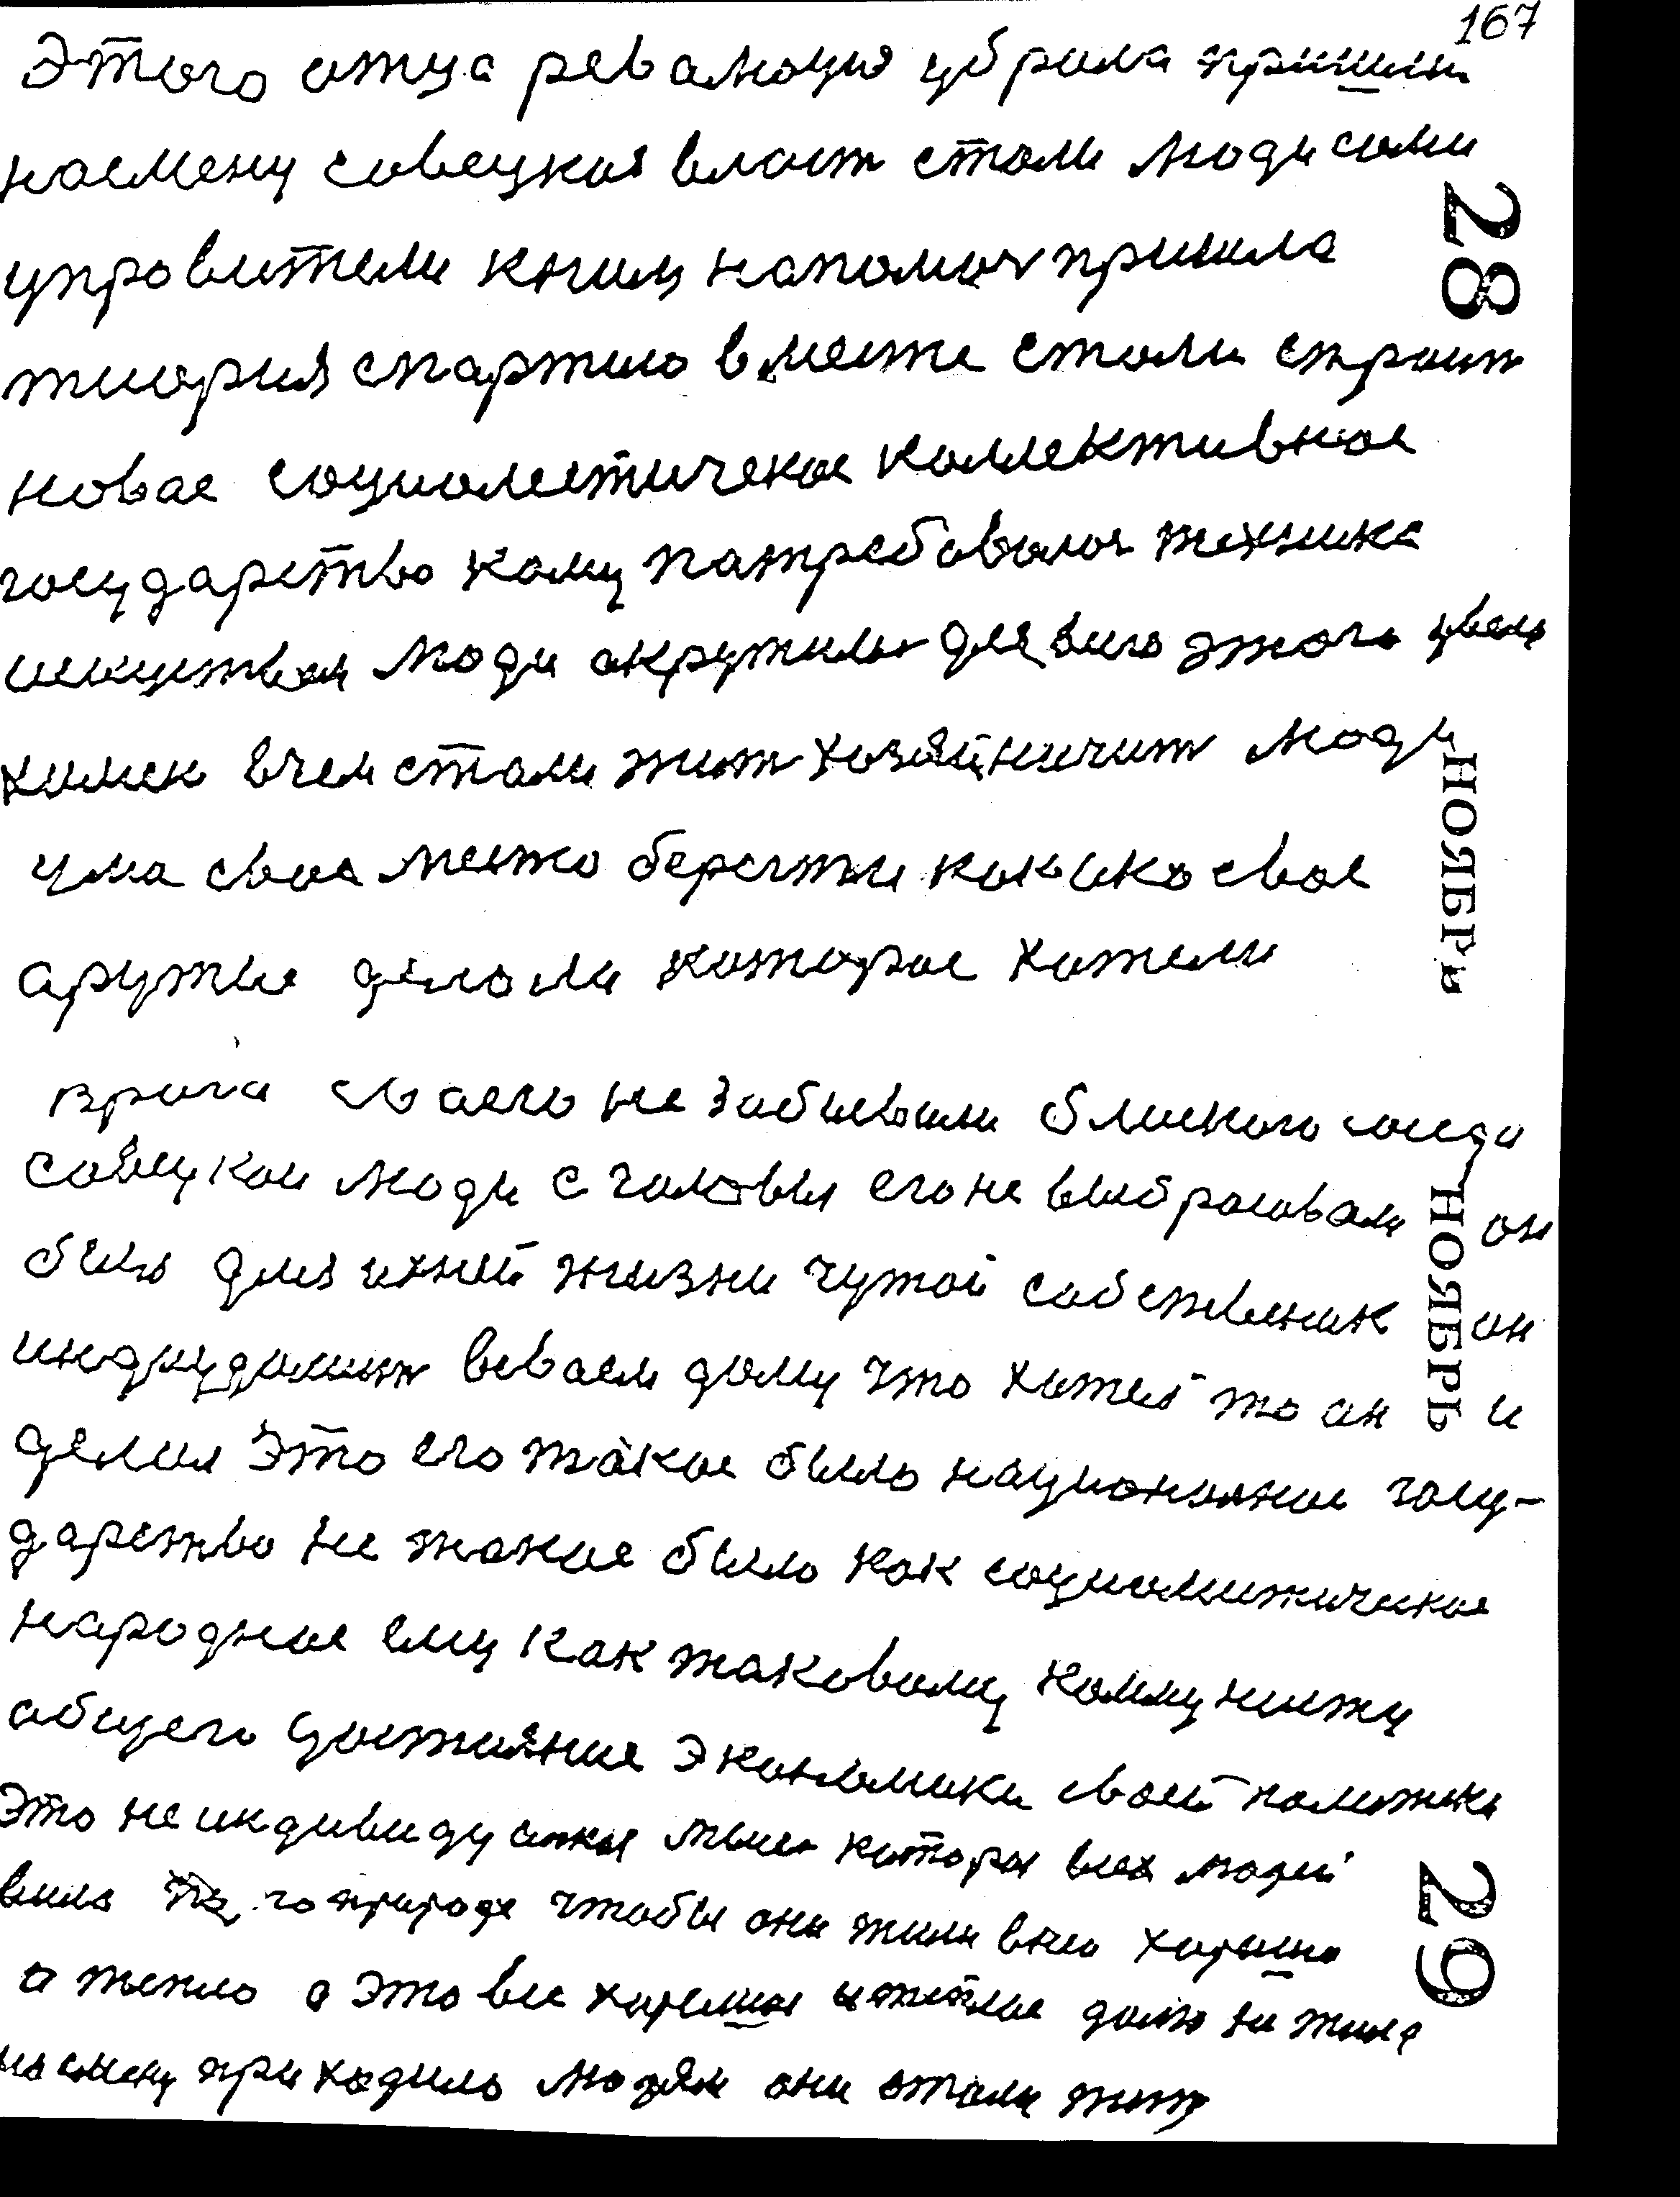 167
Этого отца революция убрала пришли
насмену совецкая власт стали люди сами
упровители кним напомоч пришла
тиория спартию вместе стали строит
новае социолистическое коллективное
государство кому патребовалоя техника
искуства люди окружились для всего этого
химею вчем стали жит хозяйничит люди
ума свое место берегти как ико свое
аружие делали которое хотели
врага сваего не забывали близкого соседа
совецкои люди с головы его не выбрасовали он
был для ихней жизни чужой собственик он
всваем дому что хотел то он и
делил это его такое было национальное госу-
дарство не такое было как социолистическое
народное ему как таковому коммунисту
общего достияние экономики своей политики
это не индивидуалная мысль котора всех людей
вила по природе чтобы они жили внею хорошо
а тепло а это все хорошее и теплое долго не жила
насмену приходило людям они стали жит
28
НОЯБРЬ
НОЯБРЬ
29